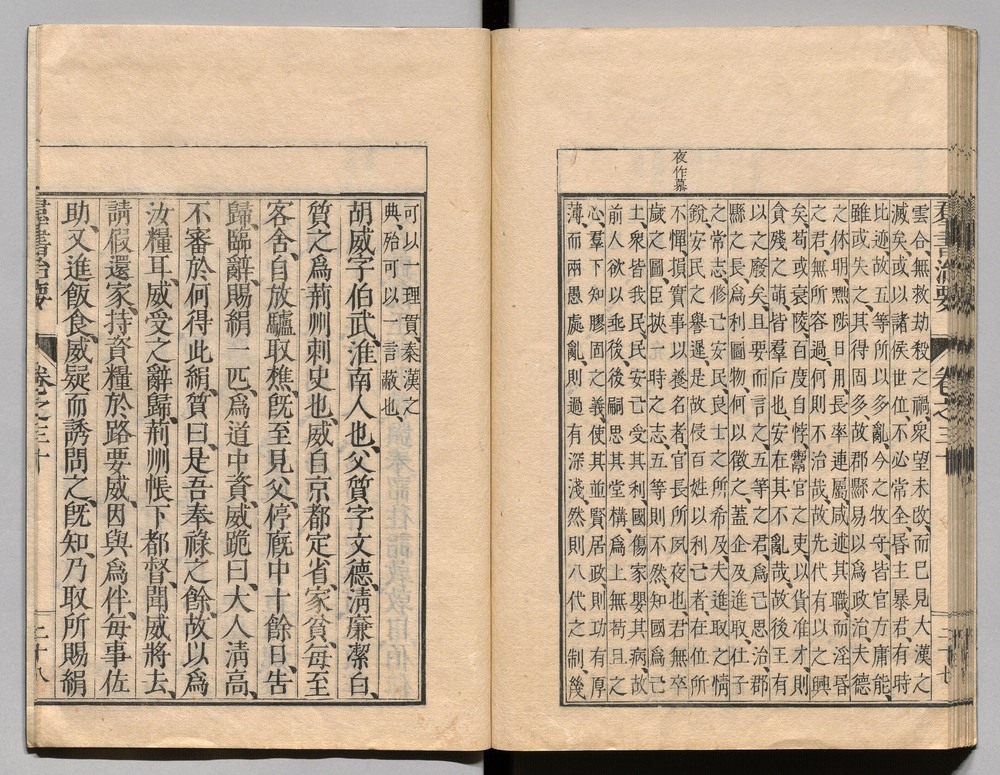 羣書治要 卷之三十 二十七
雲合、無救劫殺之禍、眾望未改、而已見大漢之
滅矣、或以諸侯世位、不必常全、昏主暴君、有時
比迹、故五等所以多亂、今之牧守、皆官方庸能、
雖或失之、其得固多、故郡縣易以爲政治、夫德
之休明、黜陟日用、長率連屬、咸述其職、而淫昏
之君、無所容過、何則不治哉、故先代有以之興
矣、苟或衰陵、百度自悖、鬻官之吏、以貨准才、則
貪殘之萌、皆羣后也、安在其不亂哉、故後王有
以之廢矣、且要而言之、五等之君、爲己思治、郡
縣之長、爲利圖物、何以徵之、蓋企及進取、仕子
之常志、修亡安民、良士之所希及、夫進取之情
銳、安民之譽遲、是故侵百姓以利己者、在位所
不憚、損實事以養名者、官長所夙夜也、君無卒
歲之圖、臣挾一時之志、五等則不然、知國爲己
土、眾皆我民、民安己受其利、國傷家嬰其病、故
前人欲以垂後、後嗣思其堂構、爲上無苟且之
心、羣下知膠固之義、使其並賢居政、則功有厚
薄、而兩愚處亂、則過有深淺、然則八代之制、幾
夜作慕
可以一理貫、秦漢之
典、殆可以一言蔽也、
胡威字伯武、淮南人也、父質字文德、淸廉潔白、
質之爲荊州刺史也、威自京都定省、家貧、每至
客舍、自放驢取樵、旣至見父、停廐中十餘日、告
歸、臨辭、賜絹一匹、爲道中資、威跪曰、大人淸高、
不審於何得此絹、質曰、是吾奉祿之餘、故以爲
汝糧耳、威受之辭歸、荊州帳下都督、聞威將去、
請假還家、持資糧於路要威、因與爲伴、每事佐
助、又進飯食、威疑而誘問之、旣知、乃取所賜絹
羣書治要 卷之三十 二十八